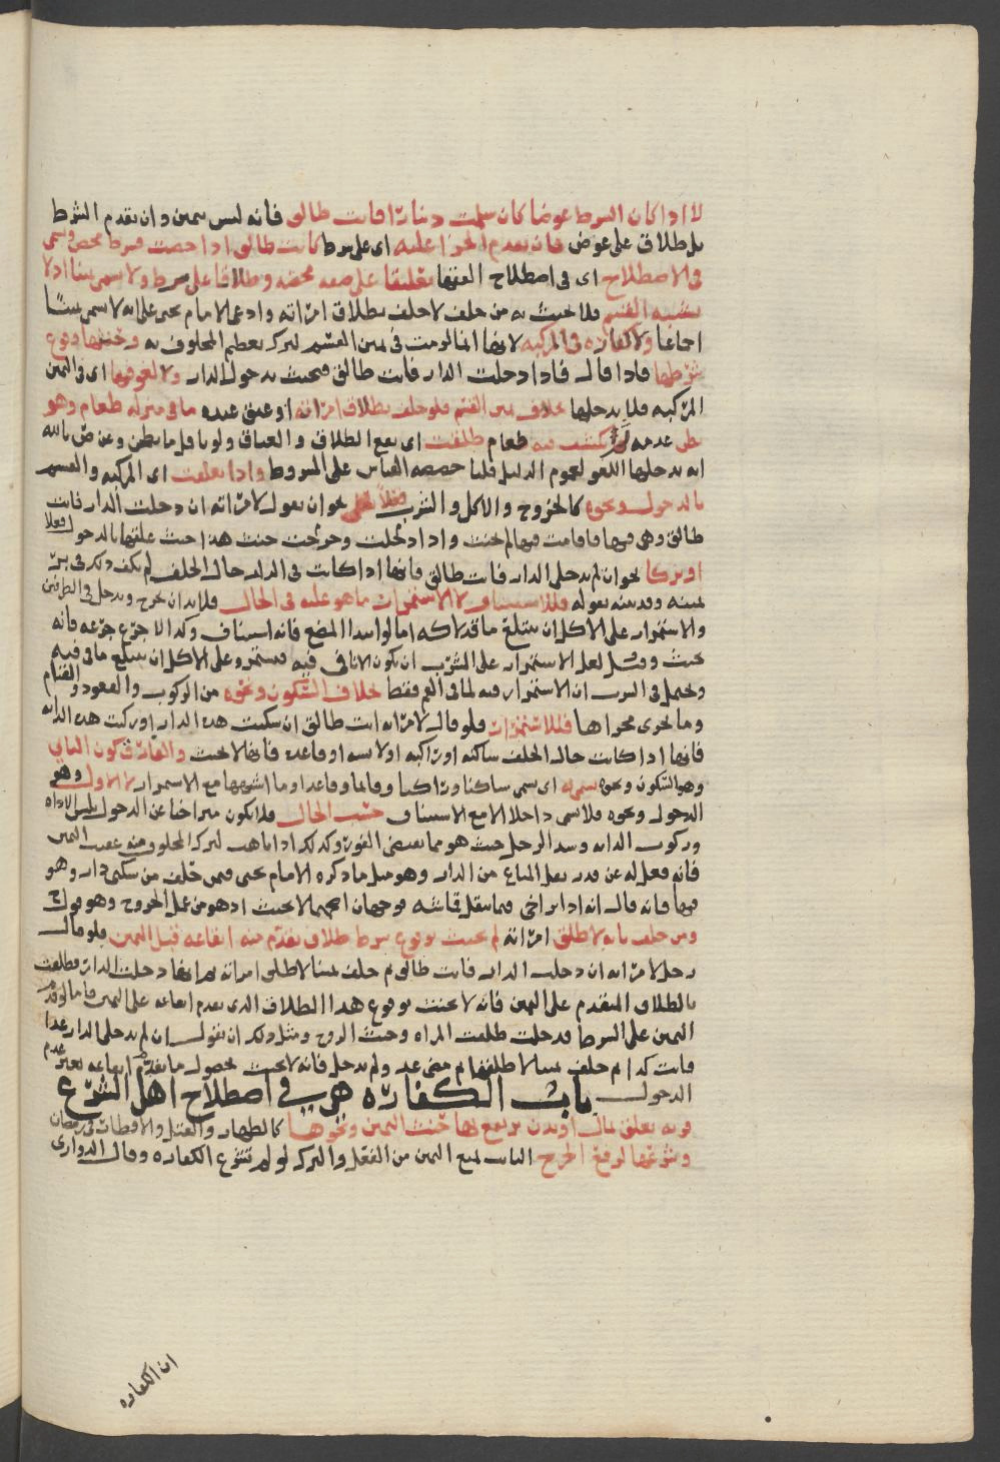 لا اذا كان الشرط عوضا كان سلمت دينارا فانت طالق فانه ليس بيمين وان تقدم الشرط
بل طلاق على عوض فان تقدم الجزا عليه اى على شرط كانت طالق اذا حضت فشرط محض وتسمى
فى الاصطلاح اى فى اصطلاح الفقها تعليقا على صفه محضه وطلاقا على شرط ولا تسمى يمينا اذ لا
تشبه القسم فلا حنث به من حلف لا حلف بطلاق امراته وادعى الامام يحيى على انه لا يسمى يمينا
اجماعا ولا كفاره فى المركبه لانها انما لزمت فى يمين القسم لترك تعظيم المحلوف به وحنثها وقوع
شرطها فاذا قال فاذا دخلت الدار فانت طالق فتحنث بدخول الدار ولا لغو فيها اى فى اليمين
المركبه فلا يدخلها بخلاف يمين القسم فلو حلف بطلاق امراته او عتق عبده ما فى منزله طعام وهو
يظن عدمه فانكشف فيه طعام طلقت اى يقع الطلاق والعتاق ولو بان ما يظن وعن ص بالله
انه يدخلها اللغو لعموم الدليل قلنا خصصه القياس على الشروط واذا تعلقت اى المركبه والقسم
بالدخول ونحوه كالخروج والاكل والشرب فعلا نحو ان يقول لامراته ان دخلت الدار فانت
طالق وهى فيها فاقامت فيها لم تحنث واذا دخلت وخرجت حنث هذا حيث علقها بالدخول فعلا
او تركا نحو ان لم تدخلى الدار فانت طالق فانها اذا كانت فى الدار حال الحلف لم يكف ذلك فى بر
يمينه وقد بينه بقوله فللاستيناف لا الاستمرار ما هو عليه فى الحال فلا بد ان يخرج ويدخل فى الطرفين
والاستمرار على الاكل ان يبتلع ما قد لاكه اما لو ابتدا المضغ فانه استيناف وكذا لا جرع جرعه فانه
يحنث وقيل لعل الاستمرار على الشرب ان يكون الانا فى فيه فيستمر وعلى الاكل ان يبتلع ما فى فيه
ويحتمل فى الشرب ان الاستمرار فيه لما فى الفم فقط خلاف السكون ونحوه من الركوب والقعود والقيام
وما جرى مجراها فللاستمرار فلو قال لامراته انت طالق ان سكنت هذه الدار او ركبت هذه الدابه
فانها اذا كانت حال الحلف ساكنه او راكبه او لابسه او قاعده فانها لا تحنث والفارق كون الثانى
وهو السكون ونحوه يسمى به اى يسمى ساكنا وراكبا وقايما وقاعدا وما اشبهها مع الاستمرار لا الاول وهو
الدخول ونحوه فلا يسمى داخلا الا مع الاستيناف حسب الحال فلا يكون متراخيا عن الدخول
وركوب الدابه وسد الرحل حيث هو مما يقتضى الفور وكذلك اذا تاهب لترك المحلوف منه عقيب اليمين
فانه فعل له عن قدر نقل المتاع من الدار وهو مثل ما ذكره الامام يحيى فيمن حلف من سكنى دار وهو
فيها فانه قال انه اذا تراخى فيما ينقل قماشه فوجهان اصحهما لا يحنث اذ هو من عمل الخروج وهو قول ح
ومن حلف بانه لا طلق امراته لم يحنث بوقوع شرط طلاق تقدم منه ايقاعه قبل اليمين فلو قال
رجل لامراته ان دخلت الدار فانت طالق ثم حلف يمينا لا طلق امراته ثم انها دخلت الدار فطلقت
بالطلاق المتقدم على اليمين فانه لا يحنث بوقوع هذا الطلاق الذى تقدم ايقاعه على اليمين فاما لو قدم
اليمين على الشرط فدخلت طلقت المراه وحنث الزوج ومثل ذلك ان يقول ان لم تدخلى الدار غدا
فانت كذا ثم حلف يمينا لا طلقها ثم مضى غد ولم تدخل فانه لا يحنث بحصول ما تقدم ايقاعه بغير عدم
الدخول باب الكفاره هى فى اصطلاح اهل الشرع
قربه تعلق بمال او بدن يرتفع بها حنث اليمين ونحوها كالظهار والقتل والافطار فى رمضان
وشرعها لرفع الحرج الثابت لمنع اليمين من الفعل والترك لو لم تشرع الكفاره وقال الدوارى
ان الكفاره